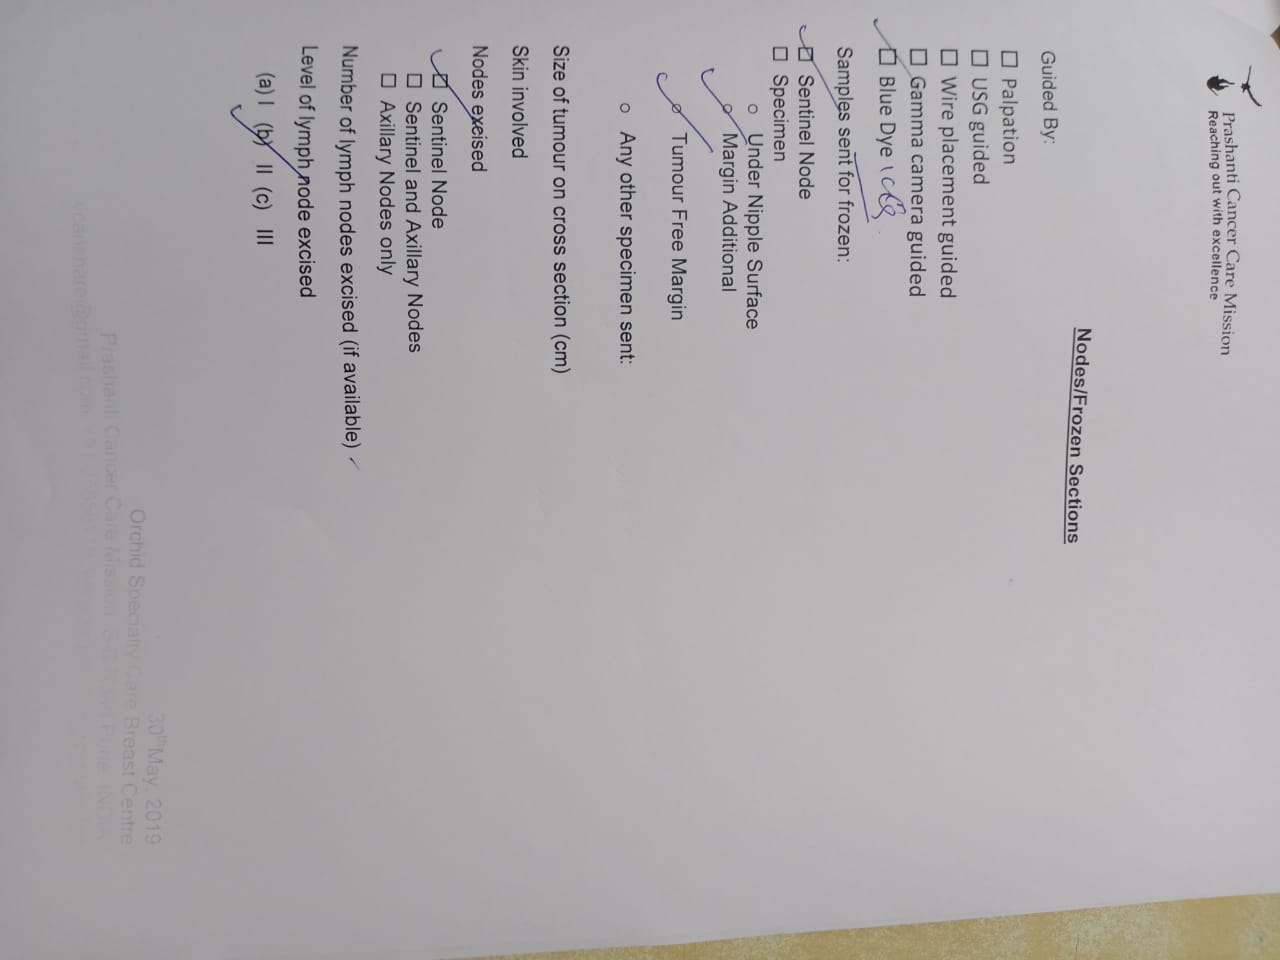 Prashanti Cancer Care Mission
Reaching out with excellence
Nodes/Frozen Sections
Guided By:
☐ Palpation
☐ USG guided
☐ Wire placement guided
☐ Gamma camera guided
☑ Blue Dye
Samples sent for frozen:
☑ Sentinel Node
☐ Specimen
o Under Nipple Surface
o Margin Additional
o Tumour Free Margin
o Any other specimen sent:
Size of tumour on cross section (cm)
Skin involved
Nodes excised
☑ Sentinel Node
☐ Sentinel and Axillary Nodes
☐ Axillary Nodes only
Number of lymph nodes excised (if available)
Level of lymph node excised
(a) I (b) II (c) III
30th May, 2019
Orchid Specialty Care Breast Centre
Prashanti Cancer Care Mission